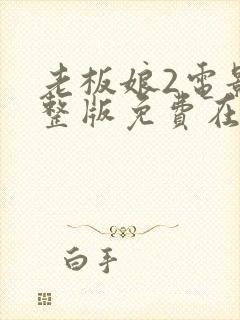 老板娘2電影
整版免費在
白手